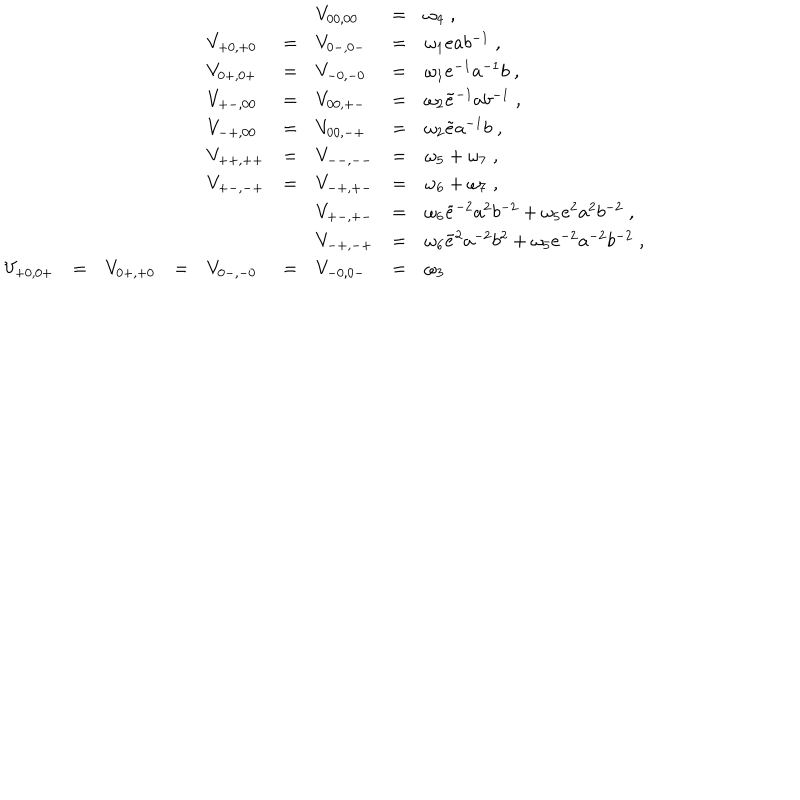 V₀₀,₀₀ = ω₄ ,
V₊₀,₊₀ = V₀₋,₀₋ = ω₁eab⁻¹ ,
V₀₊,₀₊ = V₋₀,₋₀ = ω₁e⁻¹a⁻¹b ,
V₊₋,₀₀ = V₀₀,₊₋ = ω₂ẽ⁻¹ab⁻¹ ,
V₋₊,₀₀ = V₀₀,₋₊ = ω₂ẽa⁻¹b ,
V₊₊,₊₊ = V₋₋,₋₋ = ω₅ + ω₇ ,
V₊₋,₋₊ = V₋₊,₊₋ = ω₆ + ω₇ ,
V₊₋,₊₋ = ω₆ẽ⁻²a²b⁻² + ω₅e²a²b⁻² ,
V₋₊,₋₊ = ω₆ẽ²a⁻²b² + ω₅e⁻²a⁻²b⁻² ,
V₊₀,₀₊ = V₀₊,₊₀ = V₀₋,₋₀ = V₋₀,₀₋ = ω₃